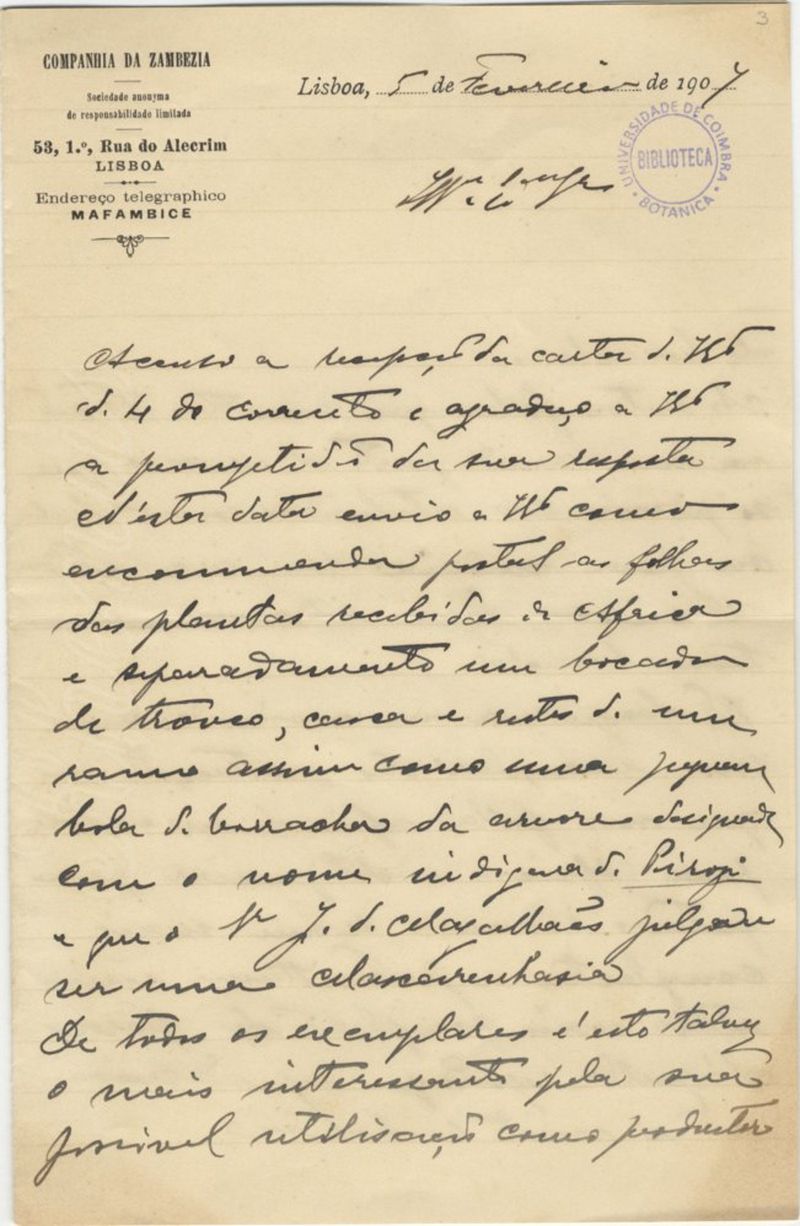 3
COMPANHIA DA ZAMBEZIA
Sociedade anonyma
de responsabilidade limitada
53, 1.º, Rua do Alecrim
LISBOA
Endereço telegraphico
MAFAMBICE
Lisboa, 5 de Fevereiro de 1907
UNIVERSIDADE DE COIMBRA
BIBLIOTECA
BOTANICA
Accuso a recepção da carta d.
d. 4 do corrente e agradeço a
a promptidão da sua resposta
N'esta data envio a como
encommenda postal as folhas
das plantas recebidas de Africa
e separadamente um bocado
de tronco, casca e restos d. um
ramo assim como uma pequena
bola d. borracha da arvore designada
com o nome indigena d.
e que o Sr J. d. Magalhães julgou
ser uma Mascarenhasia
De todos os exemplares é esto talvez
o mais interessante pela sua
possivel utilisação como productor